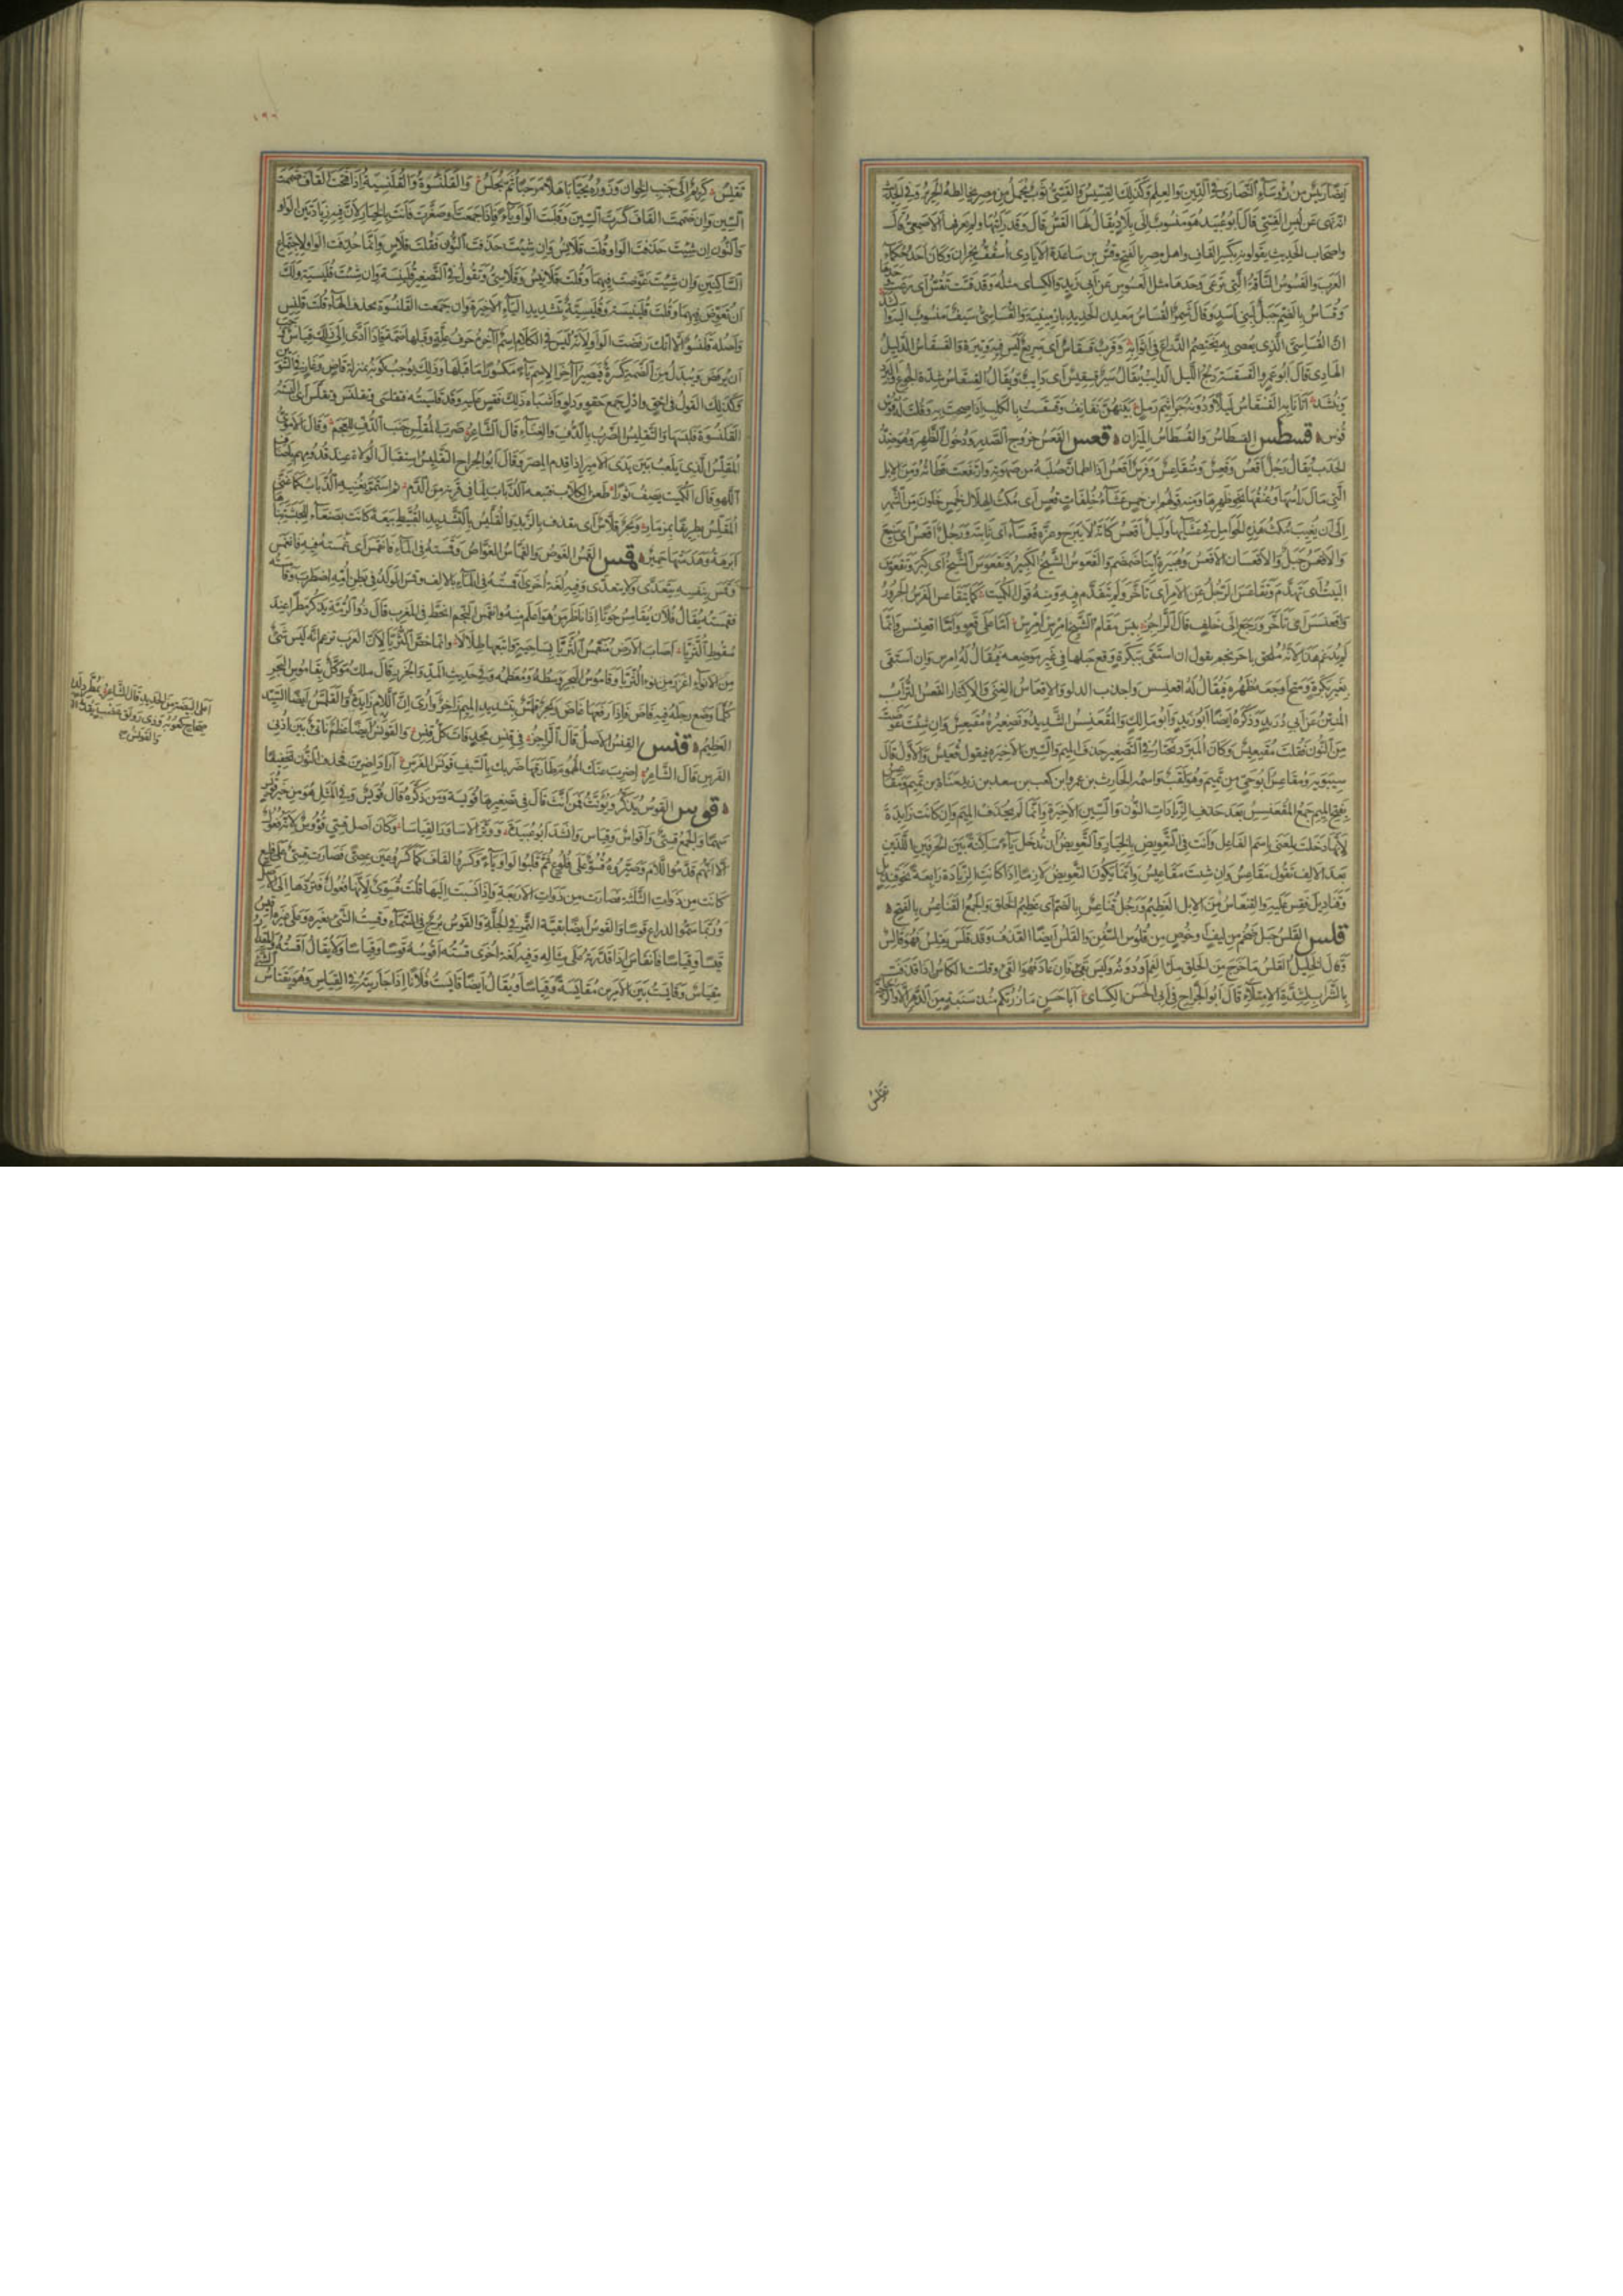 ايضا رئيس من رؤساء النصارى في الدين والعلم وكذلك القسيس والقسي ثوب يحمل من مصر يخالطه الحرير وفي الحديث
انه نهى عن لبس القسي قال ابو عبيد هو منسوب الى بلاد يقال لها القس قال وقد رايتها ولم يعرفها الاصمعي قال
واصحاب الحديث يقولونه بكسر القاف واهل مصر بالفتح وقس بن ساعدة الايادي اسقف نجران وكان احد حكماء
العرب والقسوس الناقة التي ترعى وحدها مثل العسوس عن ابي زيد والكسائي مثله وقد قست تقس اي رعت
وقساس بالضم جبل لبني اسد وقال شمر القساس معدن الحديد بارمينية والقساسي سيف منسوب اليه
ان القساسي الذي يعصى به يختصم الدارع في اثوابه وقرب قسقاس اي سريع ليس فيه وتيرة والقسقاس الدليل
الهادي قال ابو عمرو القسقسة دلج الليل الدايب يقال سير قسقيس اي دايب ويقال القسقاس شدة الجوع والبرد
وينشد اتانا به القسقاس ليلا ودونه جراثيم رمل بينهن نفانف وقسقست بالكلب اذا صحت به وقلت له قوس
قوس قسطس القسطاس والقسطاس الميزان قعس القعس خروج الصدر ودخول الظهر وهو ضد
الحدب يقال رجل اقعس وقعس ومتقاعس وفرس اقعس اذا اطمان صلبه من صهوته وارتفعت قطاته ومن الابل
التي مال راسها وعنقها نحو ظهرها ومنه قولهم ابن خمس عشاء خلفات قعس اي مكث الهلال لخمس خلون من الشهر
الى ان يغيب مكث هذه الحوامل في عشائها وليل اقعس كانه لا يبرح وعزة قعساء اي ثابتة ورجل اقعس اي منيع
والاقعس جبل والاقعسان الاقعس وهبيرة ابنا ضمضم والقعوس الشيخ الكبير وتقعوس الشيخ اي كبر وتقعوس
البيت اي تهدم وتقاعس الرجل عن الامر اي تاخر ولم يتقدم فيه ومنه قول الكميت كما يتقاعس الفرس الحرور
واقعنسس اي تاخر ورجع الى خلف قال الراجز بئس مقام الشيخ امرس امرس اما على قعو واما اقعنسس وانما
لم يدغم هذا لانه ملحق باحرنجم يقول ان استقى ببكرة وقع حبلها في غير موضعه فيقال له امرس وان استقى
بغير بكرة ومتح اوجعه ظهره فيقال له اقعنسس واجذب الدلو والاقعاس الغنى والاكثار القعس التراب
المنتن عن ابي دريد وذكره ايضا ابو زيد وابو مالك والمقعنسس الشديد وتصغيره مقيعس وان شئت عوضت
من النون فقلت مقيعيس وكان المبرد يختار في التصغير حذف الميم والسين الاخيرة فيقول قعيس والاول قول
سيبويه ومقاعس ابو حي من تميم وهو لقب واسمه الحارث بن عمرو بن كعب بن سعد بن زيد مناة بن تميم ومقاعس
بفتح الميم جمع المقعنسس بعد حذف الزيادات النون والسين الاخيرة وانما لم يحذف الميم وان كانت زايدة
لانها دخلت لمعنى اسم الفاعل وانت في التعويض بالخيار والتعويض ان تدخل ياء ساكنة بين الحرفين اللذين
بعد الالف تقول مقاعس وان شئت مقاعيس وانما يكون التعويض لازما اذا كانت الزيادة رابعة نحو قنديل
وقناديل فقس عليه والقنعاس من الابل العظيم ورجل قناعس بالضم اي عظيم الخلق والجمع القناعس بالفتح
قلس القلس حبل ضخم من ليف او خوص من قلوس السفن والقلس ايضا القذف وقد قلس يقلس فهو قالس
وقال الخليل القلس ما خرج من الحلق ملء الفم او دونه وليس بقيء فان عاد فهو القيء وقلست الكاس اذا قذفت
بالشراب لشدة الامتلاء قال ابو الجراح في ابي الحسن الكسائي ابا حسن ما زرتكم منذ سنبة من الدهر الا والزجاجة
تقلس
١٩٦
تقلس كريم الى جنب الخوان وزوره يحيا باهلا مرحبا ثم يجلس والقلنسوة والقلنسية اذا فتحت القاف ضممت
السين وان ضممت القاف كسرت السين وقلبت الواو ياء فاذا جمعت او صغرت فانت بالخيار لان فيه زيادتين الواو
والنون ان شئت حذفت الواو قلت قلانس وان شئت حذفت النون فقلت قلاس وانما حذفت الواو لاجتماع
الساكنين وان شئت عوضت فيهما وقلت قلانيس وقلاسي وتقول في التصغير قلينسة وان شئت قليسية ولك
ان تعوض فيهما وقلت قلينيسة وقليسية بتشديد الياء الاخيرة وان جمعت القلنسوة بحذف الهاء قلت قلنس
واصله قلنسو الا انك رفضت الواو لانه ليس في الكلام اسم آخره حرف علة وقبلها ضمة فاذا ادى الى ذلك قياس وجب
ان يرفض ويبدل من الضمة كسرة فيصير آخر الاسم ياء مكسورا ما قبلها وذلك يوجب كونه بمنزلة قاض وغاز في التنوين
وكذلك القول في احق وادل جمع حقو ودلو واشباه ذلك فقس عليه وقد قلسيته فتقلسى وتقلنس وتقلس اي البسته
القلنسوة فلبسها والتقليس الضرب بالدف والغناء قال الشاعر ضرب المقلس جنب الدف للعجم وقال الاموي
المقلس الذي يلعب بين يدي الامير اذا قدم المصر وقال ابو الجراح التقليس استقبال الولاة عند قدومهم باصناف
اللهو قال الكميت يصف ثورا طعن الكلاب فتبعه الذباب لما في قرنه من الدم ثم استمر يغنيه الذباب كما غنى
المقلس بطريقا بمزمار وبحر قلاس اي يقذف بالزبد والقليس بالتشديد القبيط بيعة كانت بصنعاء للحبشة بناها
ابرهة وهدمتها حمير قمس القمس الغوص والقماس الغواص وقمسته في الماء فانقمس اي غمسته فيه فانغمس
وقمس بنفسه يتعدى ولا يتعدى وفيه لغة اخرى اقمسته في الماء بالالف وقمس الولد في بطن امه اضطرب وقامسته
فقمسته يقال فلان يقامس حوتا اذا ناظر من هو اعلم منه وانقمس النجم انحط في المغرب قال ذو الرمة يذكر مطرا عند
سقوط الثريا اصاب الارض منقمس الثريا بساحية واتبعها طلالا وانما خص الثريا لان العرب تزعم انه ليس شيء
من الانواء اغزر من نوء الثريا وقاموس البحر وسطه ومعظمه وفي حديث المد والجزر قال ملك موكل بقاموس البحر
كلما وضع رجله فيه فاض فاذا رفعها غاض وبحر قلمس بتشديد الميم زاخر وارى ان اللام زايدة والقلمس ايضا السيد
العظيم قنس القنس الاصل قال الراجز في قنس مجد فات كل قنس والقونس ايضا عظم ناتئ بين اذني
الفرس قال الشاعر اضرب عنك الهموم طارقها ضربك بالسيف قونس الفرس اراد اضربن فحذف النون تخفيفا
قوس القوس يذكر ويؤنث فمن انث قال في تصغيرها قويسة ومن ذكره قال قويس وفي المثل هو من خير قويس
سهما والجمع قسي واقواس وقياس وانشد ابو عبيدة ووتر الاساور القياسا وكان اصل قسي قووس لانه فعول
الا انهم قدموا اللام وصيروه قسو على فلوع ثم قلبوا الواو ياء وكسروا القاف كما كسروا عين عصي فصارت قسي على فليع
كانت من ذوات الثلثة فصارت من ذوات الاربعة واذا نسبت اليها قلت قسوي لانها فلوع فتردها الى الاصل
وربما سموا الذراع قوسا والقوس ايضا بقية التمر في الجلة والقوس برج في السماء وقست الشيء بغيره وعلى غيره اقيس
قيسا وقياسا فانقاس اذا قدرته على مثاله وفيه لغة اخرى قسته اقوسه قوسا وقياسا ولا يقال اقسته والمقدار
مقياس وقايست بين الامرين مقايسة وقياسا ويقال ايضا قايست فلانا اذا جاريته في القياس وهو يقتاس
اعلى البيضة من الحديد قال الشاعر بمطرد لدن
صحاح كعوبه وذي رونق عضب يقد
والقونس